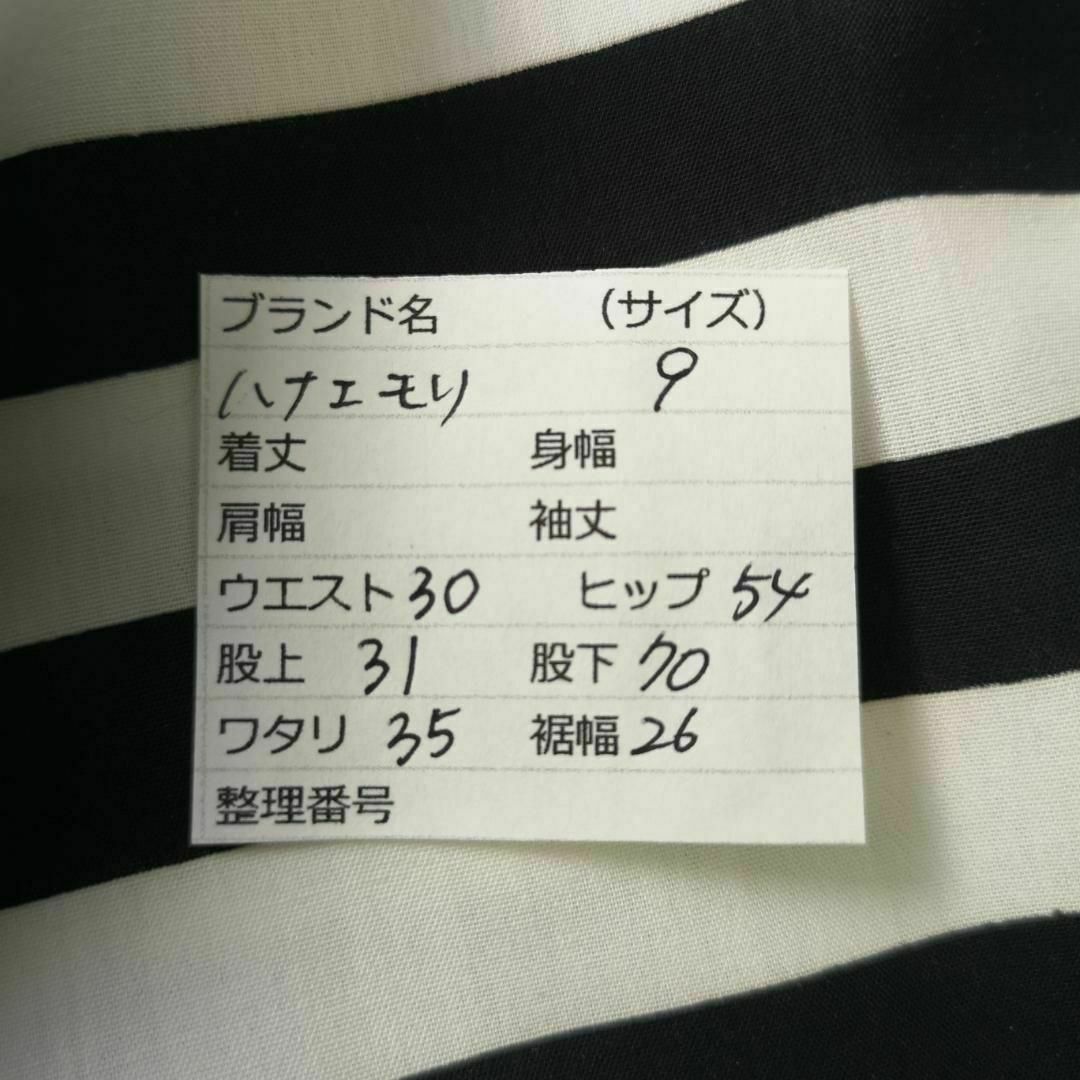 ブランド名 （サイズ）
ハナエモリ 9
着丈 身幅
肩幅 袖丈
ウエスト 30 ヒップ 54
股上 31 股下 70
ワタリ 35 裾幅 26
整理番号